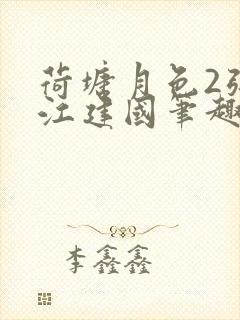 荷塘月色2张
江建国笔趣
李鑫鑫